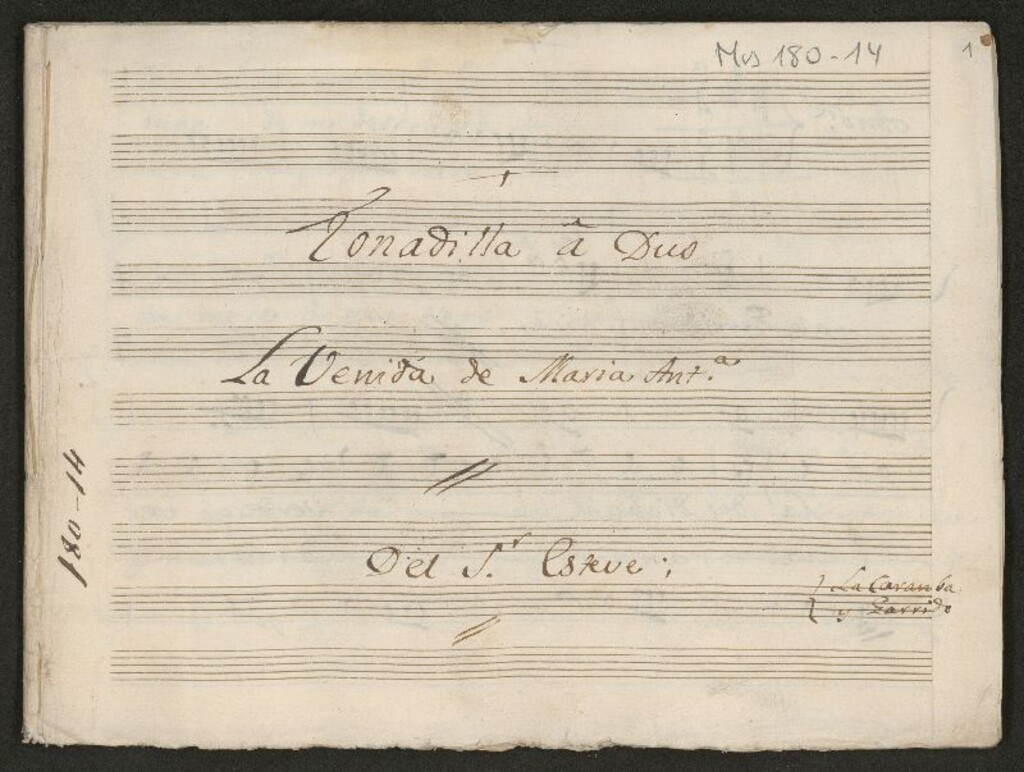 Mus 180-14
1
Tonadilla â Duo
La Venida de Maria Ant.ª
Del S.r Esteve;
La Caramba
y Garrido
180-14